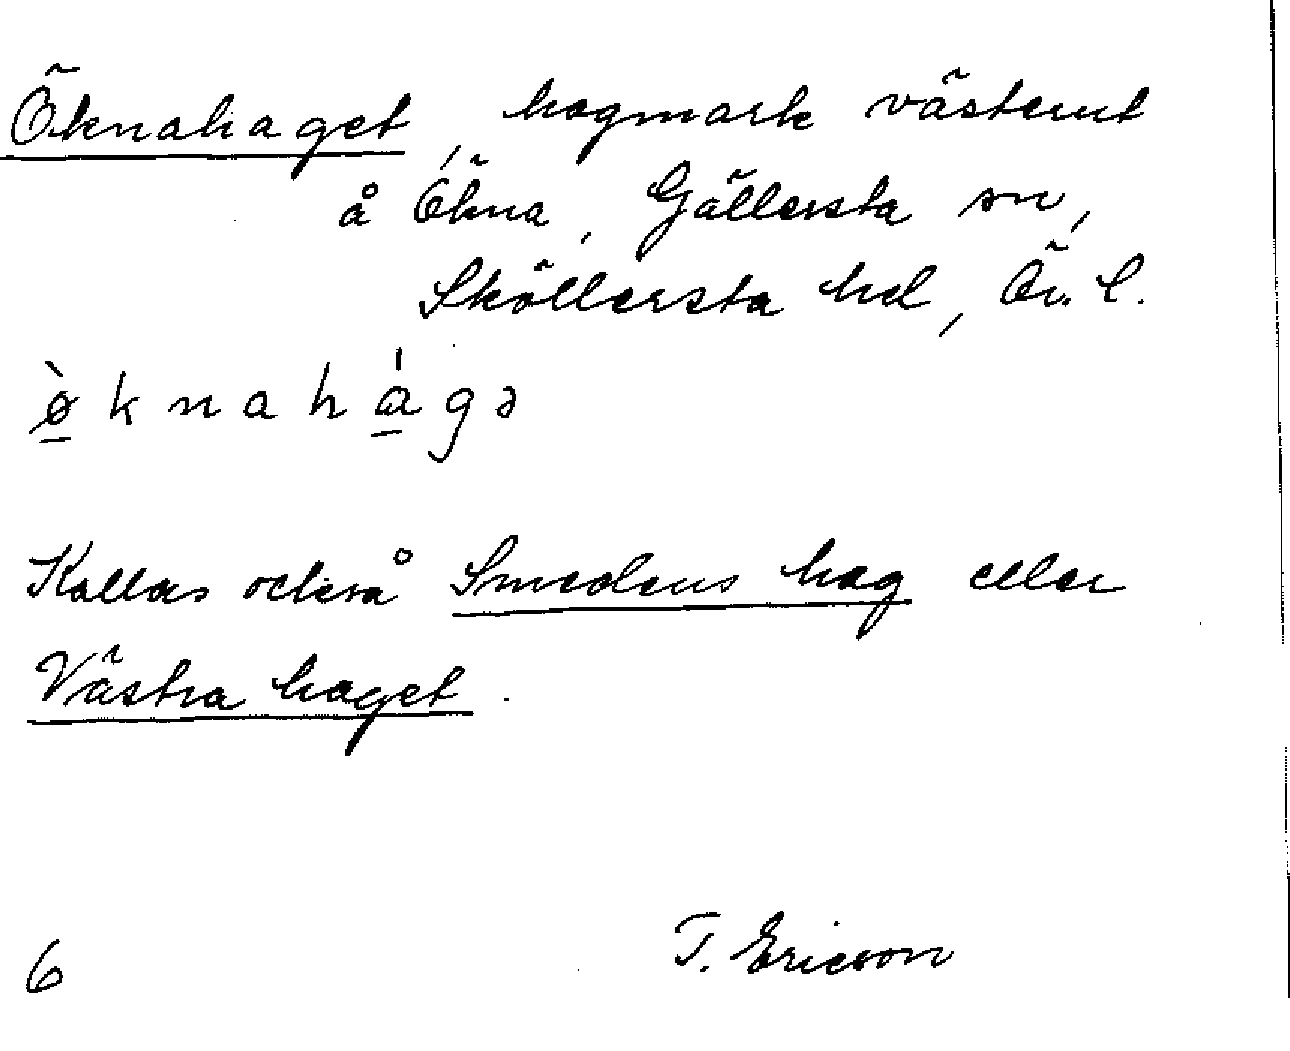 Öknahaget, hagmark västerut
å Ökna, Gällersta sn,
Sköllersta hd, Ör. l.
ø̱̀knahá̱gə
Kallas också Smedens hag eller
Västra haget.
6 T. Ericson